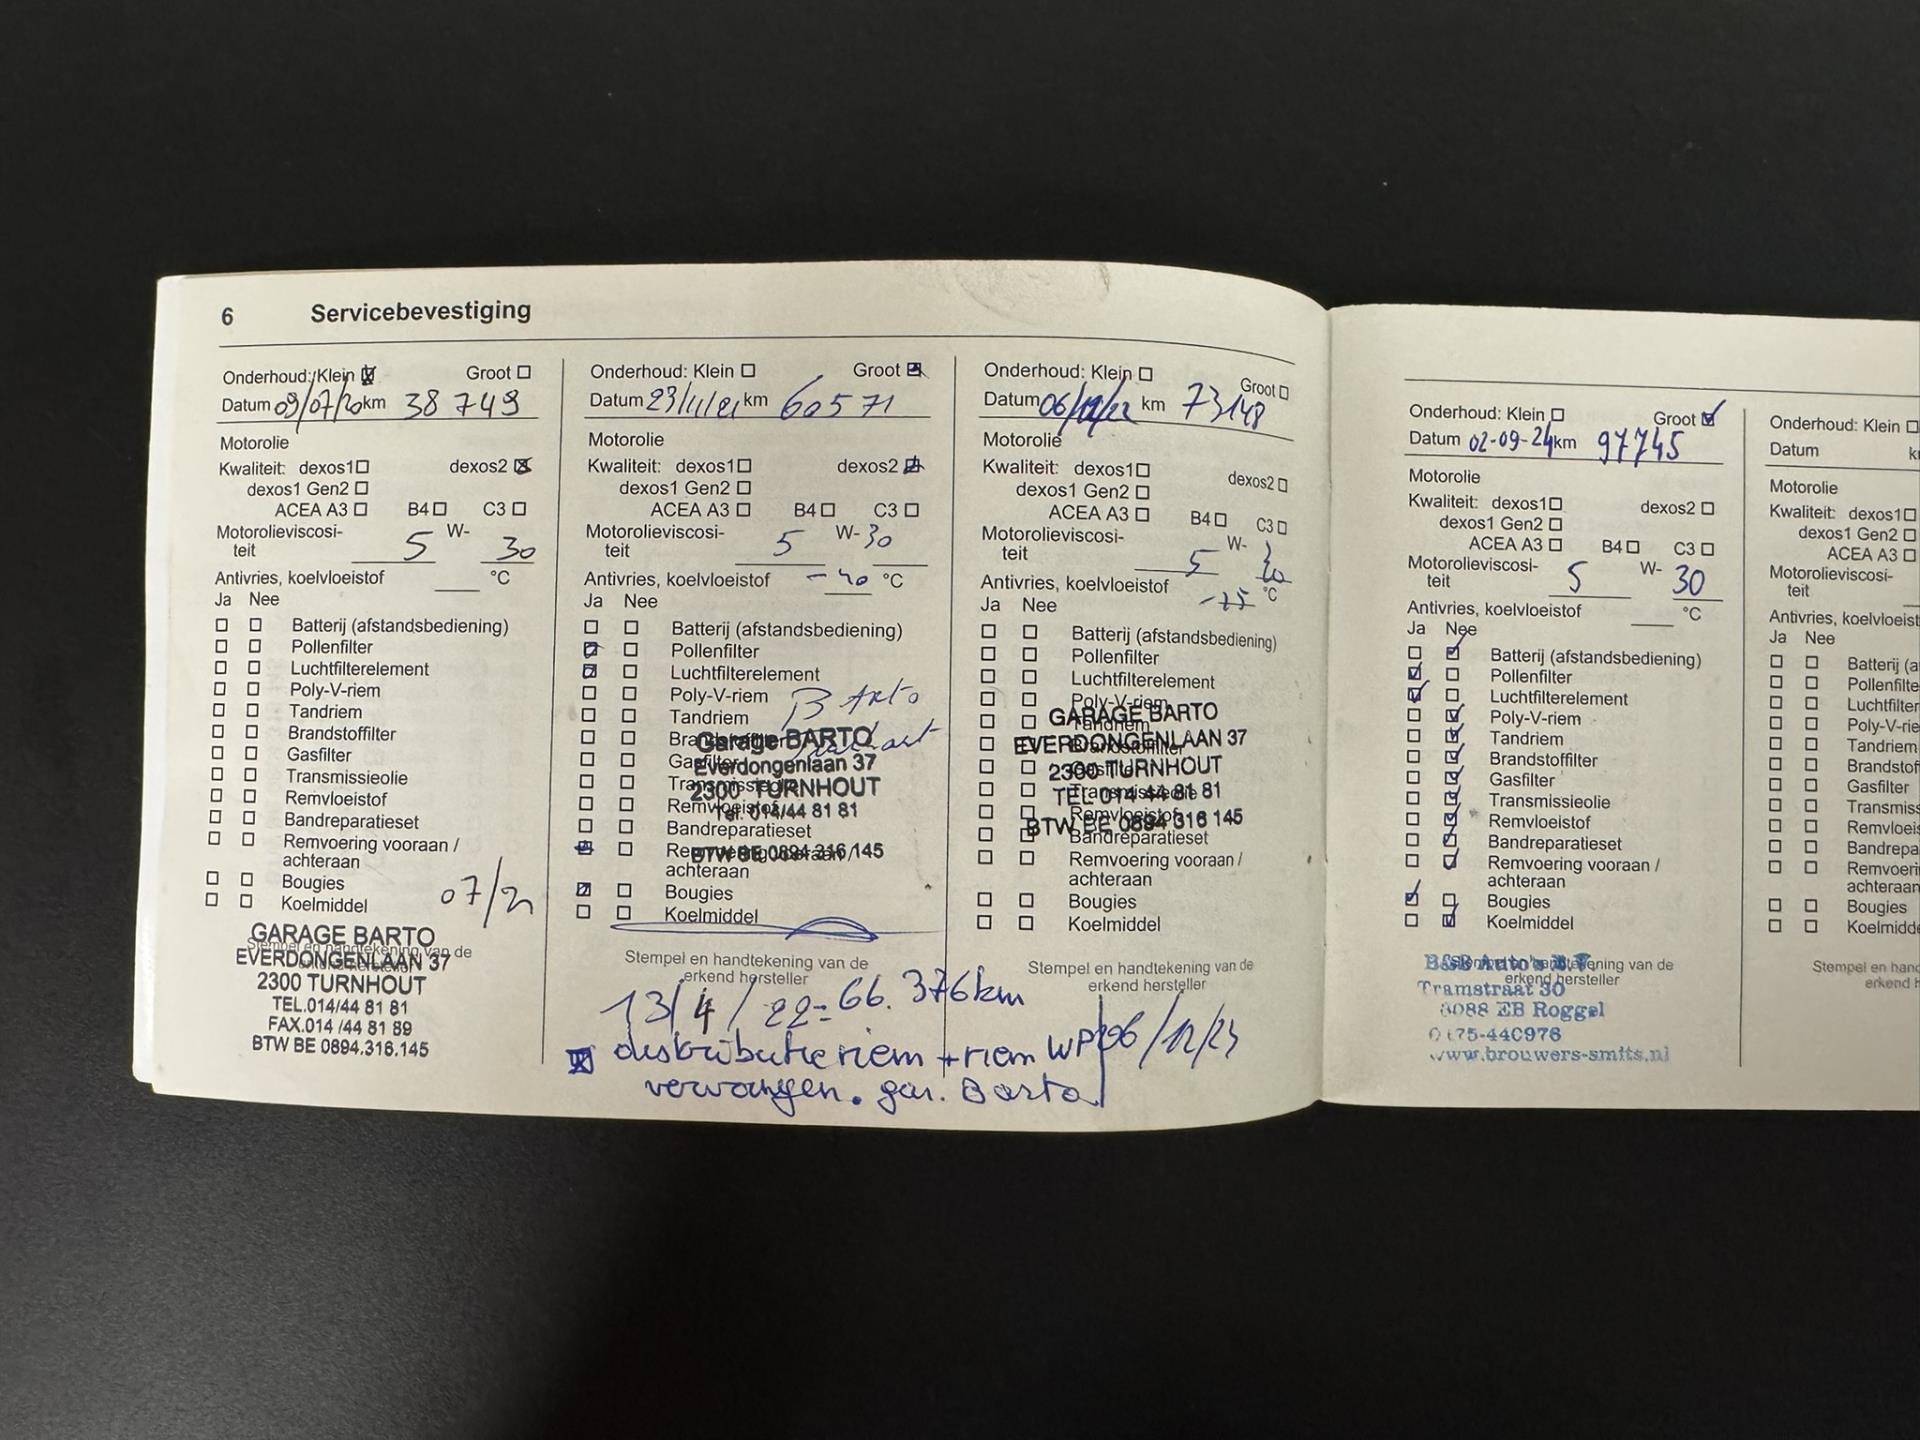 6 Servicebevestiging
Onderhoud: Klein Groot
Datum 09/07/20 km 38 749
Motorolie
Kwaliteit: dexos1 dexos2
dexos1 Gen2
ACEA A3 B4 C3
Motorolieviscosi-
teit 5 W- 30
Antivries, koelvloeistof °C
Ja Nee
Batterij (afstandsbediening)
Pollenfilter
Luchtfilterelement
Poly-V-riem
Tandriem
Brandstoffilter
Gasfilter
Transmissieolie
Remvloeistof
Bandreparatieset
Remvoering vooraan /
achteraan
Bougies
Koelmiddel
07/21
Stempel en handtekening van de
GARAGE BARTO
EVERDONGENLAAN 37
2300 TURNHOUT
TEL.014/44 81 81
FAX.014 /44 81 89
BTW BE 0894.316.145
Onderhoud: Klein Groot
Datum 23/11/21 km 60571
Motorolie
Kwaliteit: dexos1 dexos2
dexos1 Gen2
ACEA A3 B4 C3
Motorolieviscosi-
teit 5 W- 30
Antivries, koelvloeistof -40 °C
Ja Nee
Batterij (afstandsbediening)
Pollenfilter
Luchtfilterelement
Poly-V-riem
Tandriem
Brandstoffilter
Gasfilter
Transmissieolie
Remvloeistof
Bandreparatieset
Remvoering vooraan /
achteraan
Bougies
Koelmiddel
Barto
Garage BARTO
Everdongenlaan 37
2300 TURNHOUT
Tel. 014/44 81 81
BTW BE 0894 316 145
Stempel en handtekening van de
erkend hersteller
13/4/22= 66.376km
distributieriem + riem WP
vervangen. gar. Barto
Onderhoud: Klein Groot
Datum 06/12/22 km 73148
Motorolie
Kwaliteit: dexos1 dexos2
dexos1 Gen2
ACEA A3 B4 C3
Motorolieviscosi-
teit 5 W- 30
Antivries, koelvloeistof °C
Ja Nee
Batterij (afstandsbediening)
Pollenfilter
Luchtfilterelement
Poly-V-riem
Tandriem
Brandstoffilter
Gasfilter
Transmissieolie
Remvloeistof
Bandreparatieset
Remvoering vooraan /
achteraan
Bougies
Koelmiddel
GARAGE BARTO
EVERDONGENLAAN 37
2300 TURNHOUT
TEL 014 44 81 81
BTW BE 0894 316 145
Stempel en handtekening van de
erkend hersteller
06/12/23
Onderhoud: Klein Groot
Datum 02-09-24 km 97745
Motorolie
Kwaliteit: dexos1 dexos2
dexos1 Gen2
ACEA A3 B4 C3
Motorolieviscosi-
teit 5 W- 30
Antivries, koelvloeistof °C
Ja Nee
Batterij (afstandsbediening)
Pollenfilter
Luchtfilterelement
Poly-V-riem
Tandriem
Brandstoffilter
Gasfilter
Transmissieolie
Remvloeistof
Bandreparatieset
Remvoering vooraan /
achteraan
Bougies
Koelmiddel
Stempel en handtekening van de
erkend hersteller
B&B Auto's B.V.
Tramstraat 30
6088 EB Roggel
0475-440976
www.brouwers-smits.nl
Onderhoud: Klein
Datum k
Motorolie
Kwaliteit: dexos1
dexos1 Gen2
ACEA A3
Motorolieviscosi-
teit
Antivries, koelvloeist
Ja Nee
Batterij (a
Pollenfilte
Luchtfilter
Poly-V-rie
Tandriem
Brandstof
Gasfilter
Transmiss
Remvloeis
Bandrepa
Remvoeri
achteraan
Bougies
Koelmidde
Stempel en hand
erkend h